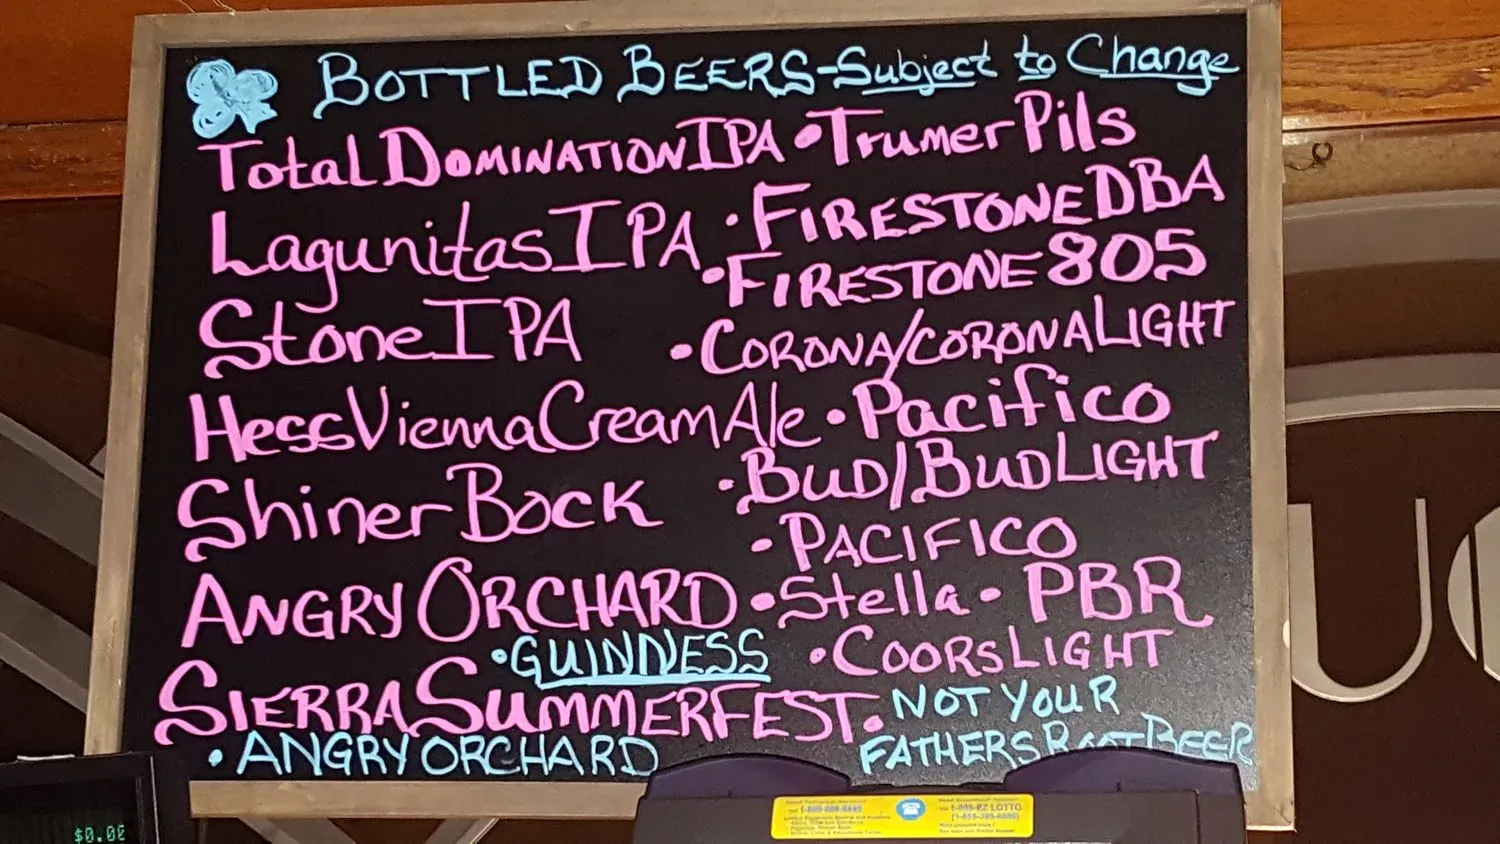 BOTTLED BEERS-Subject to Change
Total DOMINATION IPA • Trumer Pils
Lagunitas IPA • FIRESTONE DBA
• FIRESTONE 805
Stone IPA • CORONA/CORONA LIGHT
Hess Vienna Cream Ale • Pacifico
• BUD/BUD LIGHT
Shiner Bock
• PACIFICO
ANGRY ORCHARD • Stella • PBR
• GUINNESS • COORS LIGHT
SIERRA SUMMERFEST • NOT YOUR
FATHERS ROOT BEER
• ANGRY ORCHARD
U
$0.00
1-855-EZ LOTTO